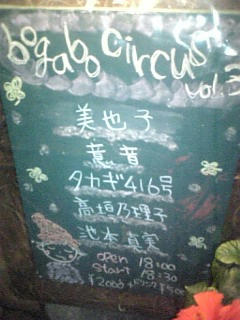 bogabo circus!
vol.3
美也子
意音
タカギ416号
高垣乃理子
池本真実
open 18:00
start 18:30
¥2000 +ドリンク¥500